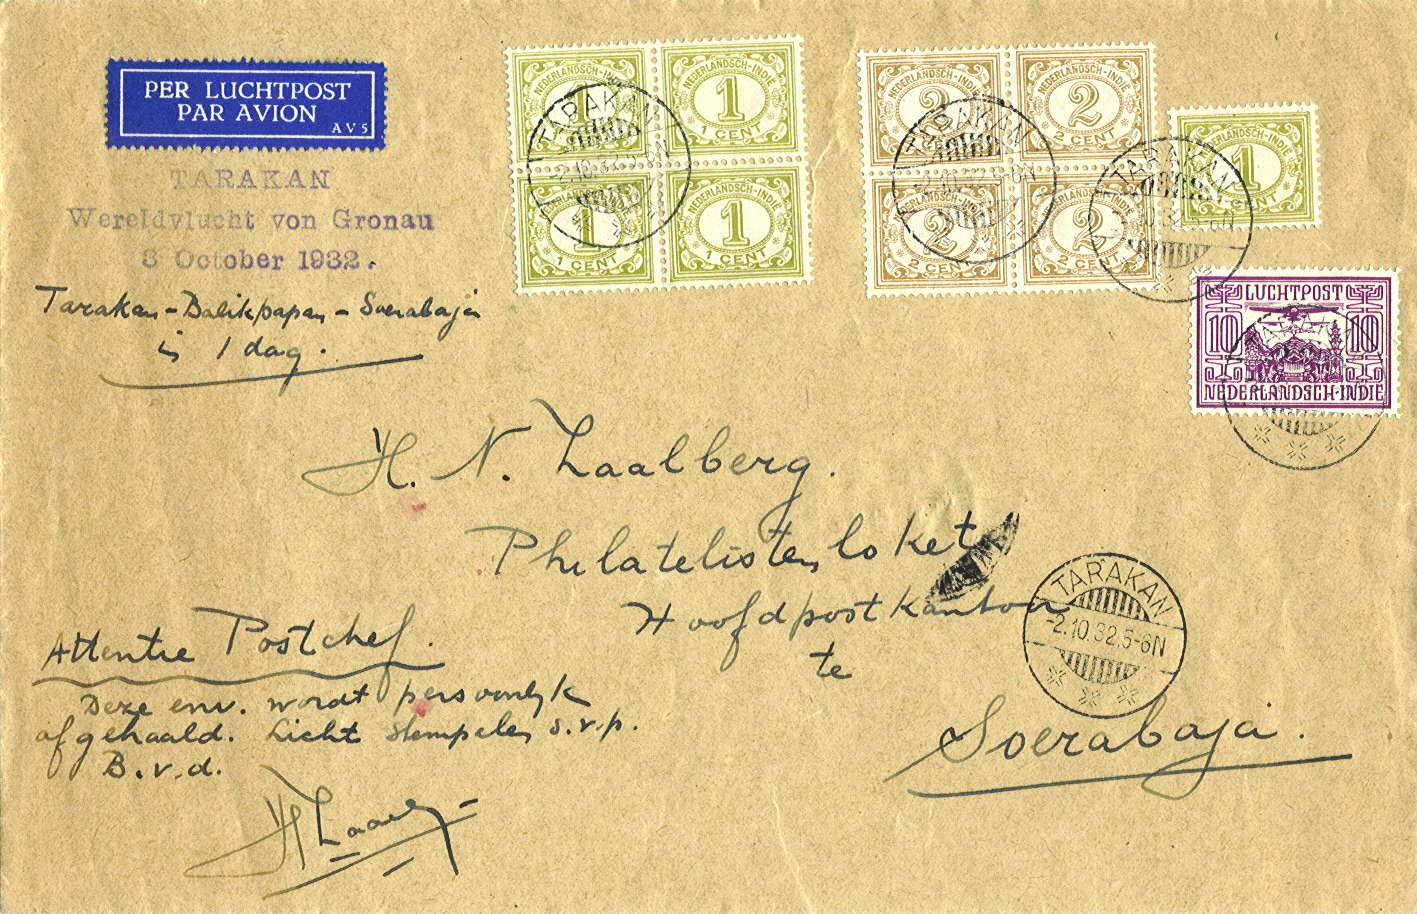 PER LUCHTPOST
PAR AVION
AV5
TARAKAN
Wereldvlucht von Gronau
3 October 1932.
Tarakan - Balikpapan - Soerabaja
in 1 dag.
NEDERLANDSCH-INDIE
1
1 CENT
NEDERLANDSCH-INDIE
1
1 CENT
NEDERLANDSCH-INDIE
1
1 CENT
NEDERLANDSCH-INDIE
1
1 CENT
TARAKAN
-2.10.32.5-6N
NEDERLANDSCH-INDIE
2
2 CENT
NEDERLANDSCH-INDIE
2
2 CENT
NEDERLANDSCH-INDIE
2
2 CENT
NEDERLANDSCH-INDIE
2
2 CENT
TARAKAN
-2.10.32.5-6N
NEDERLANDSCH-INDIE
1
1 CENT
TARAKAN
-2.10.32.5-6N
LUCHTPOST
10 10
NEDERLANDSCH-INDIE
TARAKAN
H. N. Laalberg.
Philatelistenloket
Hoofdpostkantoor
te
Soerabaja.
TARAKAN
-2.10.32.5-6N
Attentie Postchef.
Deze env. wordt persoonlijk
afgehaald. Licht stempelen s.v.p.
B.v.d.